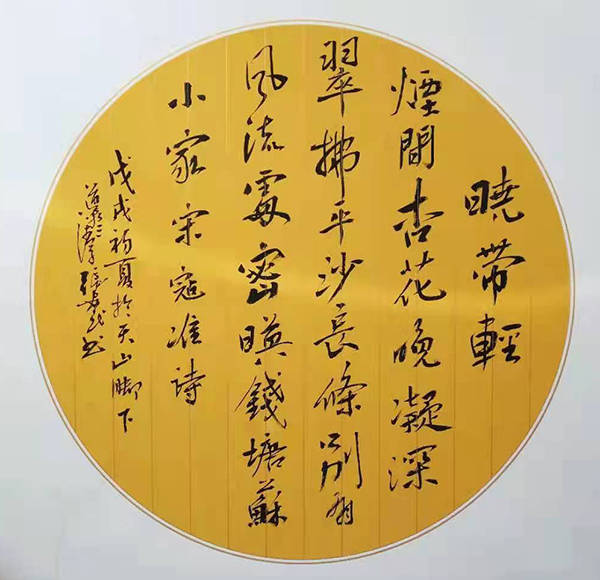 曉帶輕
煙間杏花晚凝深
翠拂平沙長條別有
風流處密暎錢塘蘇
小家宋寇准詩
戊戌初夏於天山腳下
張書